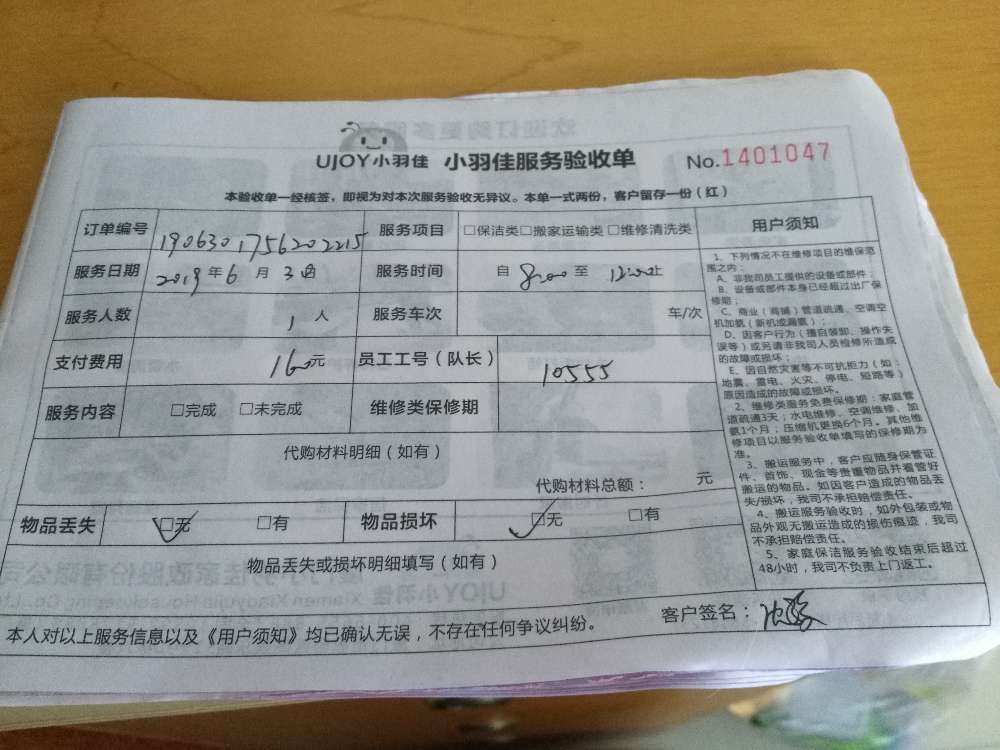 UJOY小羽佳 小羽佳服务验收单 No.1401047
本验收单一经核签，即视为对本次服务验收无异议。本单一式两份，客户留存一份（红）
订单编号 1906301756202215 服务项目 □保洁类□搬家运输类□维修清洗类
服务日期 2019年6月30日 服务时间 自8:00至12:00止
服务人数 1人 服务车次 车/次
支付费用 160元 员工工号（队长） 10555
服务内容 □完成 □未完成 维修类保修期
代购材料明细（如有）
代购材料总额： 元
物品丢失 ☑无 □有 物品损坏 ☑无 □有
物品丢失或损坏明细填写（如有）
本人对以上服务信息以及《用户须知》均已确认无误，不存在任何争议纠纷。 客户签名：
用户须知
1、下列情况不在维修项目的维保范
围之内：
A、非我司员工提供的设备或部件；
B、设备或部件本身已经超过出厂保
修期；
C、商业（商铺）管道疏通、空调空
机加氨（新机或漏氨）；
D、因客户行为（擅自装卸、操作失
误等）或另请非我司人员检修所造成
的故障或损坏；
E、因自然灾害等不可抗拒力（如：
地震、雷电、火灾、停电、短路等）
原因造成的故障或损坏。
2、维修类服务免费保修期：家庭管
道疏通3天；水电维修、空调维修、加
氨1个月；压缩机更换6个月。其他维
修项目以服务验收单填写的保修期为
准。
3、搬运服务中，客户应随身保管证
件、首饰、现金等贵重物品并看管好
搬运的物品。如因客户造成的物品丢
失/损坏，我司不承担赔偿责任。
4、搬运服务验收时，如外包装或物
品外观无搬运造成的损伤痕迹，我司
不承担赔偿责任。
5、家庭保洁服务验收结束后超过
48小时，我司不负责上门返工。